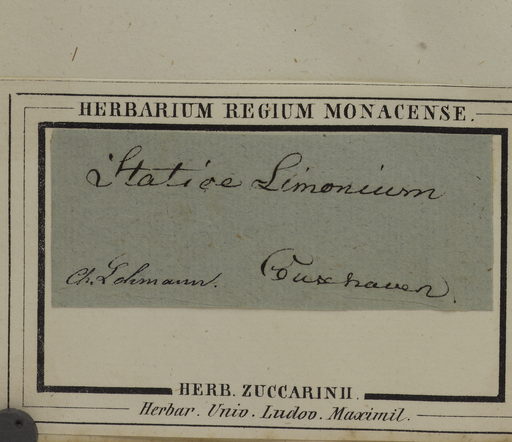 HERBARIUM REGIUM MONACENSE.
Statice Limonium
Ch. Lehmann. Cuxhaven.
HERB. ZUCCARINII.
Herbar. Univ. Ludov. Maximil.